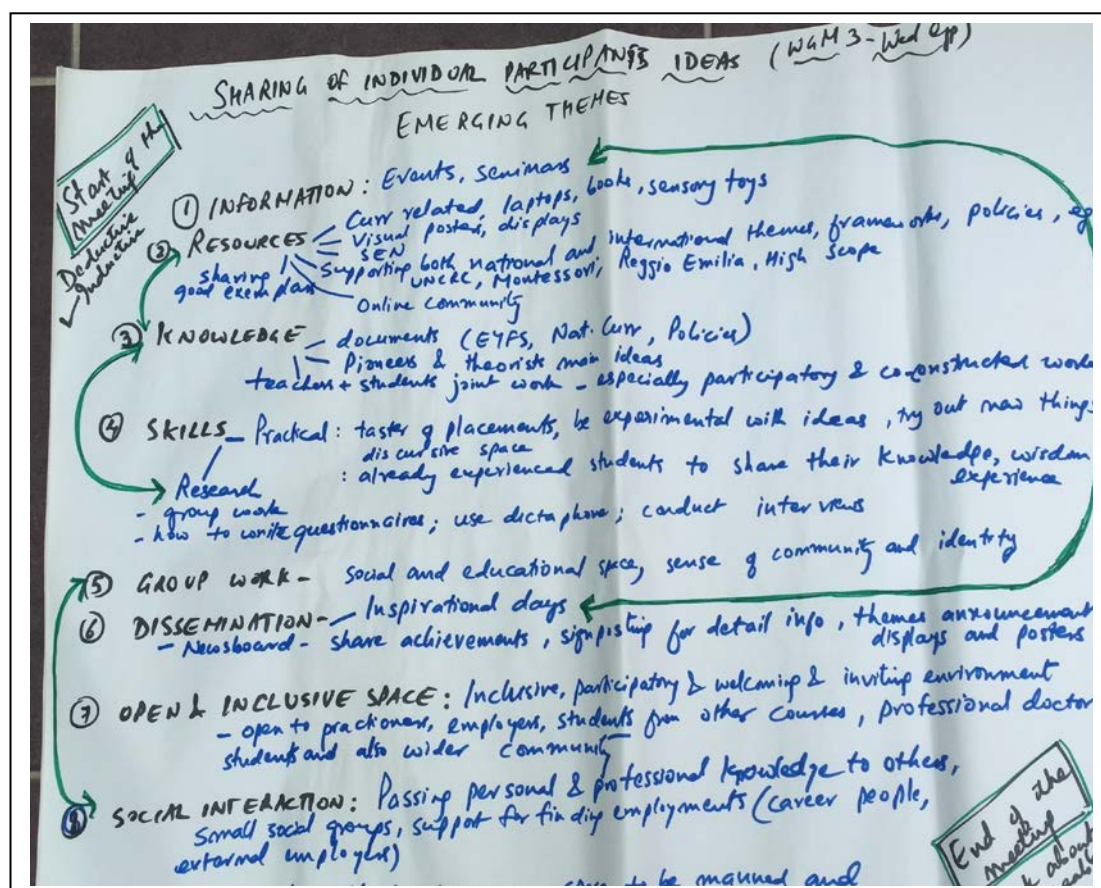 SHARING OF INDIVIDUAL PARTICIPANTS IDEAS (WGM 3 - Wed Gp)
EMERGING THEMES
Start of the
meeting
Deductive
Inductive
① INFORMATION : Events, seminars
② RESOURCES Curr related, laptops, books, sensory toys
Visual posters, displays
SEN
Supporting both national and international themes, frameworks, policies, eg
UNCRC, Montessori, Reggio Emilia, High Scope
sharing
good exemplars
Online community
③ KNOWLEDGE - documents (EYFS, Nat. Curr, Policies)
- Pioneers & theorists main ideas
teachers + students joint work - especially participatory & co-constructed work
④ SKILLS - Practical : taster of placements, be experimental with ideas, try out new things
discursive space
: already experienced students to share their knowledge, wisdom
experience
Research
- group work
- how to write questionnaires ; use dictaphone ; conduct interviews
⑤ GROUP WORK - social and educational space, sense of community and identity
⑥ DISSEMINATION - Inspirational days
- Newsboard - share achievements, signposting for detail info, themes announcement
displays and posters
⑦ OPEN & INCLUSIVE SPACE : Inclusive, participatory & welcoming & inviting environment
- open to practioners, employers, students from other courses, professional doctor
students and also wider community
⑧ SOCIAL INTERACTION : Passing personal & professional knowledge to others,
small social groups, support for finding employments (career people,
external employers)
to be manned and
End of the
meeting
about